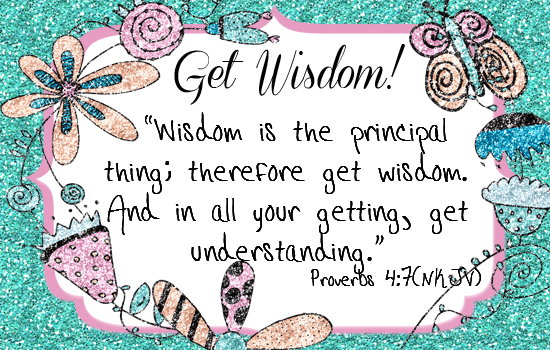 Get Wisdom!
"Wisdom is the principal
thing; therefore get wisdom.
And in all your getting, get
understanding."
Proverbs 4:7(NKJV)